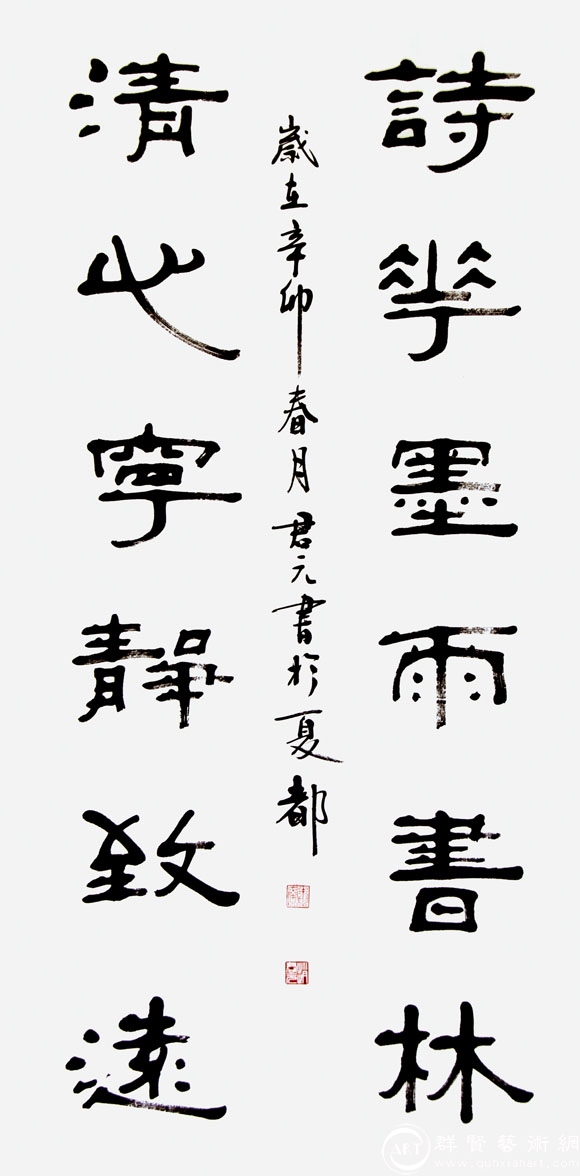 詩花墨雨書林
歲在辛卯春月君元書於夏都
清心寧靜致遠
ART 群賢藝術網